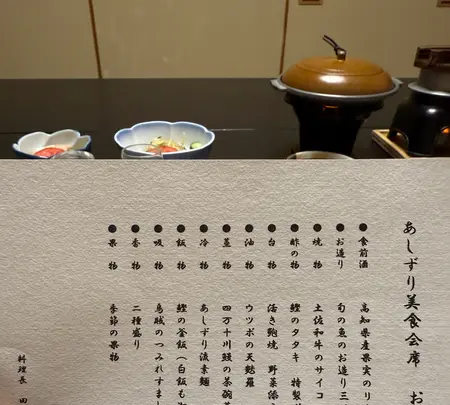 あしずり美食会席 お
●食前酒 高知県産果実のリ
●お造り 旬の魚のお造り三
●焼物 土佐和牛のサイコ
●酢の物 鰹のタタキ 特製
●台物 活き鮑焼 野菜添
●油物 ウツボの天麩羅
●蒸物 四万十川鰻の茶碗
●冷物 あしずり流素麺
●飯物 鰹の釜飯(白飯も
●吸物 烏賊のつみれすま
●香物 二種盛り
●果物 季節の果物
料理長 田